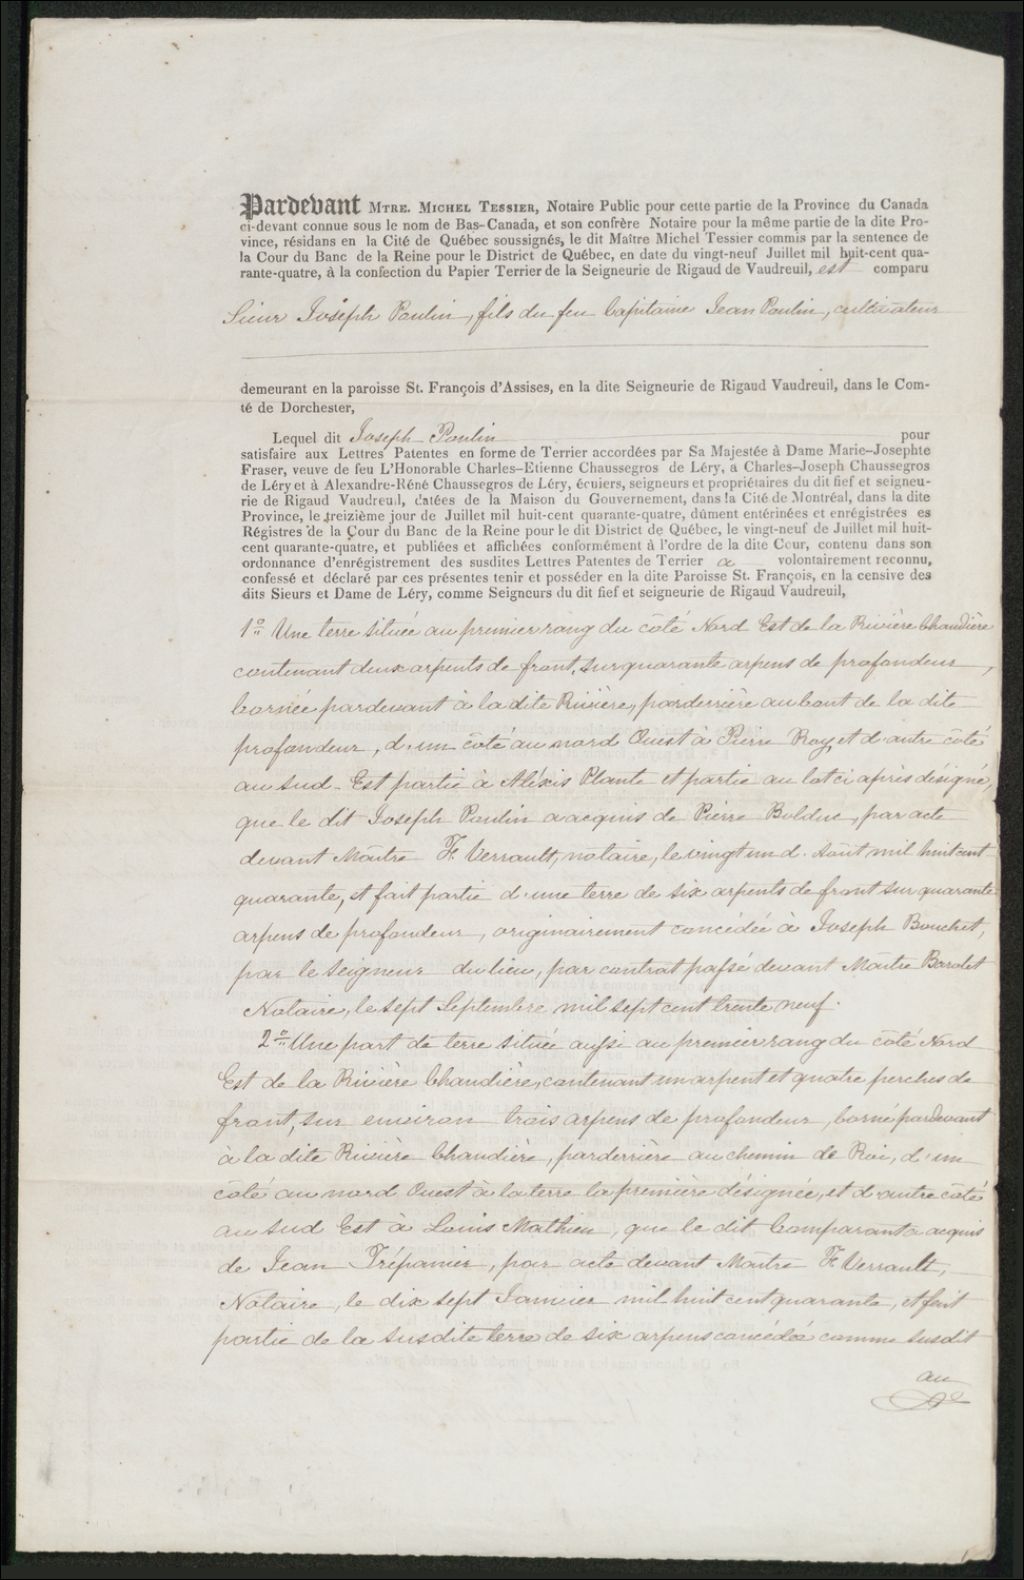 Pardevant MTRE. MICHEL TESSIER, Notaire Public pour cette partie de la Province du Canada
ci-devant connue sous le nom de Bas-Canada, et son confrère Notaire pour la même partie de la dite Pro-
vince, résidans en la Cité de Québec soussignés, le dit Maître Michel Tessier commis par la sentence de
la Cour du Banc de la Reine pour le District de Québec, en date du vingt-neuf Juillet mil huit-cent qua-
rante-quatre, à la confection du Papier Terrier de la Seigneurie de Rigaud de Vaudreuil, est comparu
Sieur Joseph Poulin, fils du feu Capitaine Jean Poulin, cultivateur
demeurant en la paroisse St. François d'Assises, en la dite Seigneurie de Rigaud Vaudreuil, dans le Com-
té de Dorchester,
Lequel dit Joseph Poulin pour
satisfaire aux Lettres Patentes en forme de Terrier accordées par Sa Majestée à Dame Marie-Josephte
Fraser, veuve de feu L'Honorable Charles-Etienne Chaussegros de Léry, a Charles-Joseph Chaussegros
de Léry et à Alexandre-Réné Chaussegros de Léry, écuiers, seigneurs et propriétaires du dit fief et seigneu-
rie de Rigaud Vaudreuil, datées de la Maison du Gouvernement, dans la Cité de Montréal, dans la dite
Province, le treizième jour de Juillet mil huit-cent quarante-quatre, dûment entérinées et enrégistrées es
Régistres de la Cour du Banc de la Reine pour le dit District de Québec, le vingt-neuf de Juillet mil huit-
cent quarante-quatre, et publiées et affichées conformément à l'ordre de la dite Cour, contenu dans son
ordonnance d'enrégistrement des susdites Lettres Patentes de Terrier a volontairement reconnu,
confessé et déclaré par ces présentes tenir et posséder en la dite Paroisse St. François, en la censive des
dits Sieurs et Dame de Léry, comme Seigneurs du dit fief et seigneurie de Rigaud Vaudreuil,
1o Une terre située au premier rang du côté Nord Est de la Rivière Chaudière
contenant deux arpents de front, sur quarante arpens de profondeur,
bornée pardevant à la dite Rivière, parderrière au bout de la dite
profondeur, d'un côté au nord Ouest à Pierre Roy, et d'autre côté
au sud-Est partie à Aléxis Plante et partie au lot ci après désigné,
que le dit Joseph Poulin a acquis de Pierre Bolduc, par acte
devant Maître F. Verrault, notaire, le vingt un d'Août mil huit cent
quarante, et fait partie d'une terre de six arpents de front sur quarante
arpens de profondeur, originairement concédée à Joseph Bouchet,
par le Seigneur du lieu, par contrat passé devant Maître Barolet
Notaire, le sept Septembre mil sept cent trente neuf.
2o Une part de terre située aussi au premier rang du côté Nord
Est de la Rivière Chaudière, contenant un arpent et quatre perches de
front, sur environ trois arpens de profondeur, borné pardevant
à la dite Rivière Chaudière, parderrière au chemin de Roi, d'un
côté au nord Ouest à la terre la première désignée, et d'autre côté
au sud Est à Louis Mathieu, que le dit Comparant a acquis
de Jean Trépanier, par acte devant Maître F. Verrault,
Notaire, le dix sept Janvier mil huit cent quarante, et fait
partie de la susdite terre de six arpens concédée comme susdit
au